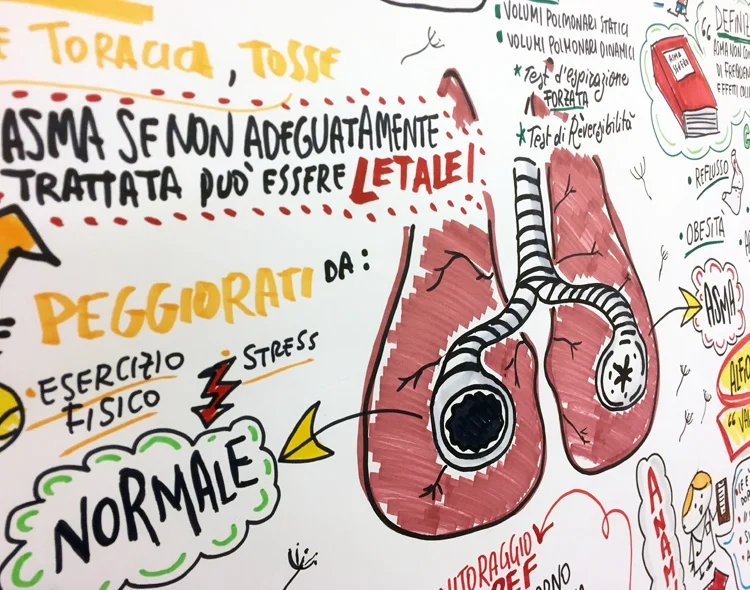 E TORACICA, TOSSE
ASMA SE NON ADEGUATAMENTE
TRATTATA PUÒ ESSERE LETALE!
PEGGIORATI DA:
• ESERCIZIO
FISICO
• STRESS
NORMALE
• VOLUMI POLMONARI STATICI
• VOLUMI POLMONARI DINAMICI
* Test d'espirazione
FORZATA
* Test di Reversibilità
DEFINIZ
"ASMA NON CON
DI FREQUEN
EFFETTI
ASMA
• REFLUSSO
• OBESITÀ
ASMA
ANAM
NITORAGGIO
PEF
ORNO